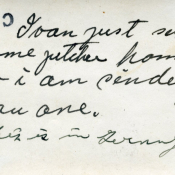 Ivan just se
me pitcher hom
i am sende
ou one.
is is in